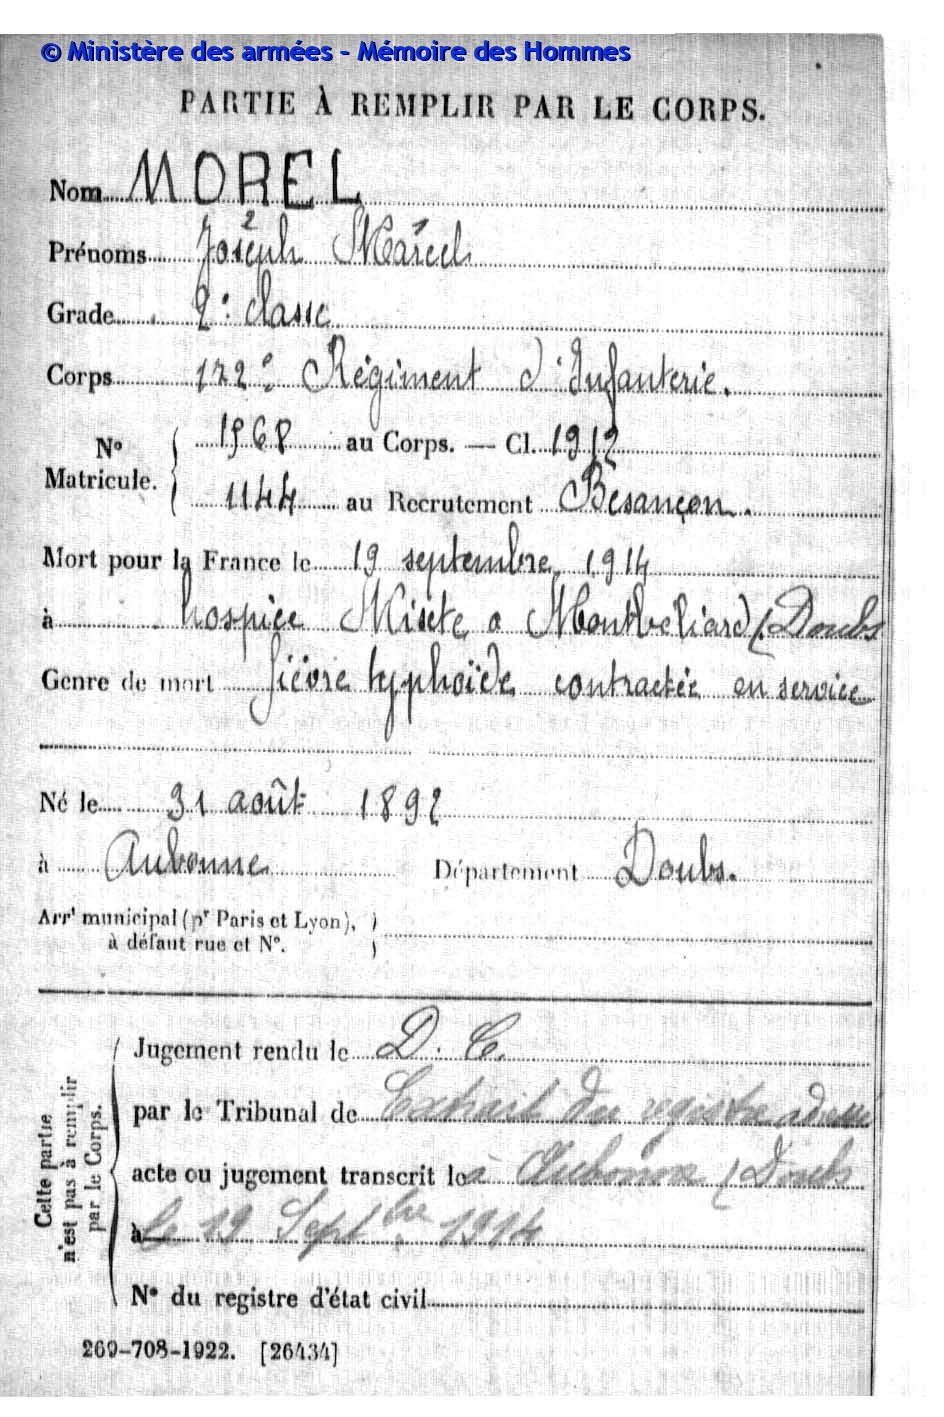 © Ministère des armées - Mémoire des Hommes
PARTIE À REMPLIR PAR LE CORPS.
Nom MOREL
2 1
Prénoms Joseph Marcel
Grade 2e classe
Corps 172e Régiment d'Infanterie.
N° 1968 au Corps. — Cl. 1912
Matricule. 1144 au Recrutement Besançon.
Mort pour la France le 19 septembre 1914
à hospice Mixte a Montbéliard (Doubs
Genre de mort fièvre typhoïde contractée en service
Né le 31 août 1892
à Aubonne Département Doubs.
Arrt municipal (pr Paris et Lyon),
à défaut rue et N°.
Cette partie
n'est pas à remplir
par le Corps.
Jugement rendu le D. C.
par le Tribunal de Extrait du registre adressé
acte ou jugement transcrit le à Aubonne (Doubs
à le 19 Septbre 1914
N° du registre d'état civil
269-708-1922. [26434]